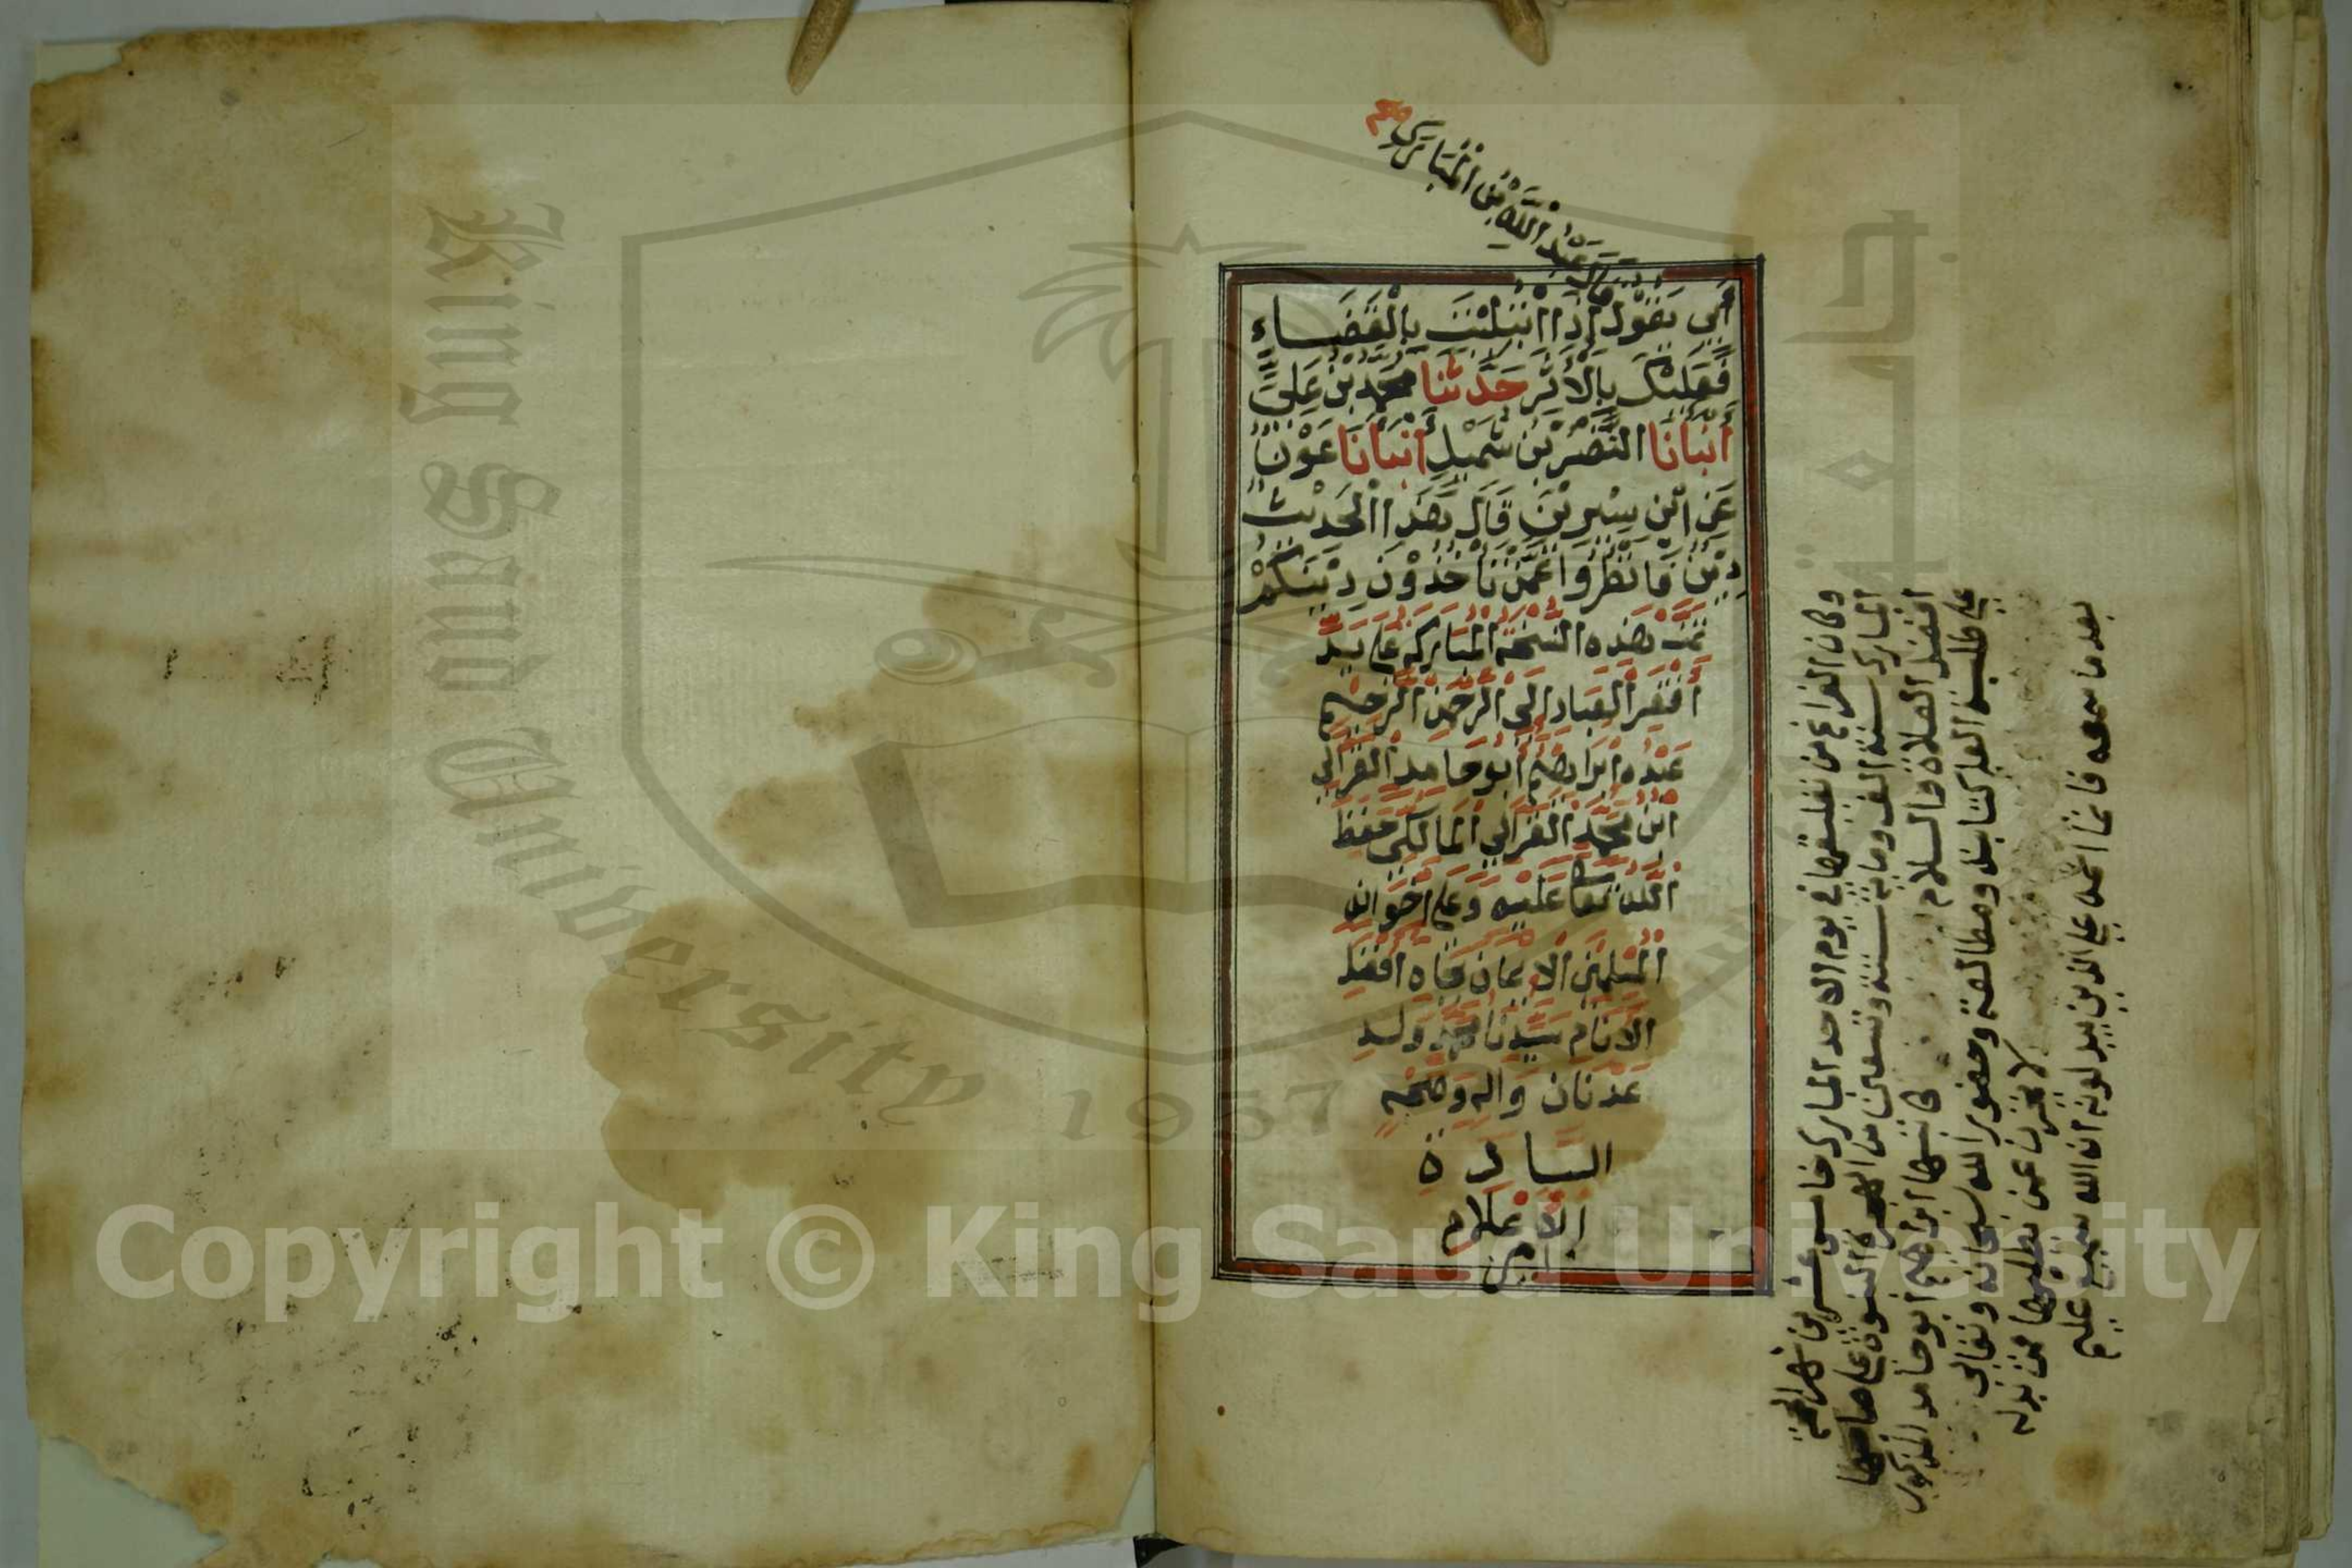 قَالَ عَبْدُ اللَّهِ بْنُ الْمُبَارَكِ صح
أَبِي يَقُولُ إِذَا ابْتُلِيْتَ بِالْقَضَاءِ
فَعَلَيْكَ بِالْأَثَرِ حَدَّثَنَا مُحَمَّدُ بْنُ عَلِيٍّ
أَنْبَأَنَا النَّضْرُ بْنُ شُمَيْلٍ أَنْبَأَنَا عَوْنٌ
عَنِ ابْنِ سِيْرِيْنَ قَالَ هَذَا الْحَدِيْثُ
دِيْنٌ فَانْظُرُوا عَمَّنْ تَأْخُذُوْنَ دِيْنَكُمْ
تمت هذه النسخة المباركة على يد
أفقر العباد إلى الرحمن الرحيم
عبده ابراهيم أبو حامد الغزالي
ابن محمد الغزالي المالكي حفظ
الله تعا عليه وعلى اخوانه
المسلمين الايمان بجاه افضل
الانام سيدنا محمد ولد
عدنان واله وصحبه
السادة
الاعلام
امين
وكان الفراغ من تعليقها في يوم الاحد المبارك خامس عشرين شهر الحجة
المبارك سنة الف ومائة ستة وتسعين من الهجرة النبوية على صاحبها
افضل الصلاة والسلام كاتبها ابراهيم ابو حامد المذكور
على طلبة العلم كتابة ومطالعة وحضور الله سبحانه وتعالى
لا تخزن عن تطلبها فمن بدله
بعد ما سمعه فانما اثمه على الذين يبدلونه ان الله سميع عليم
King Saud University
1957
Copyright © King Saud University